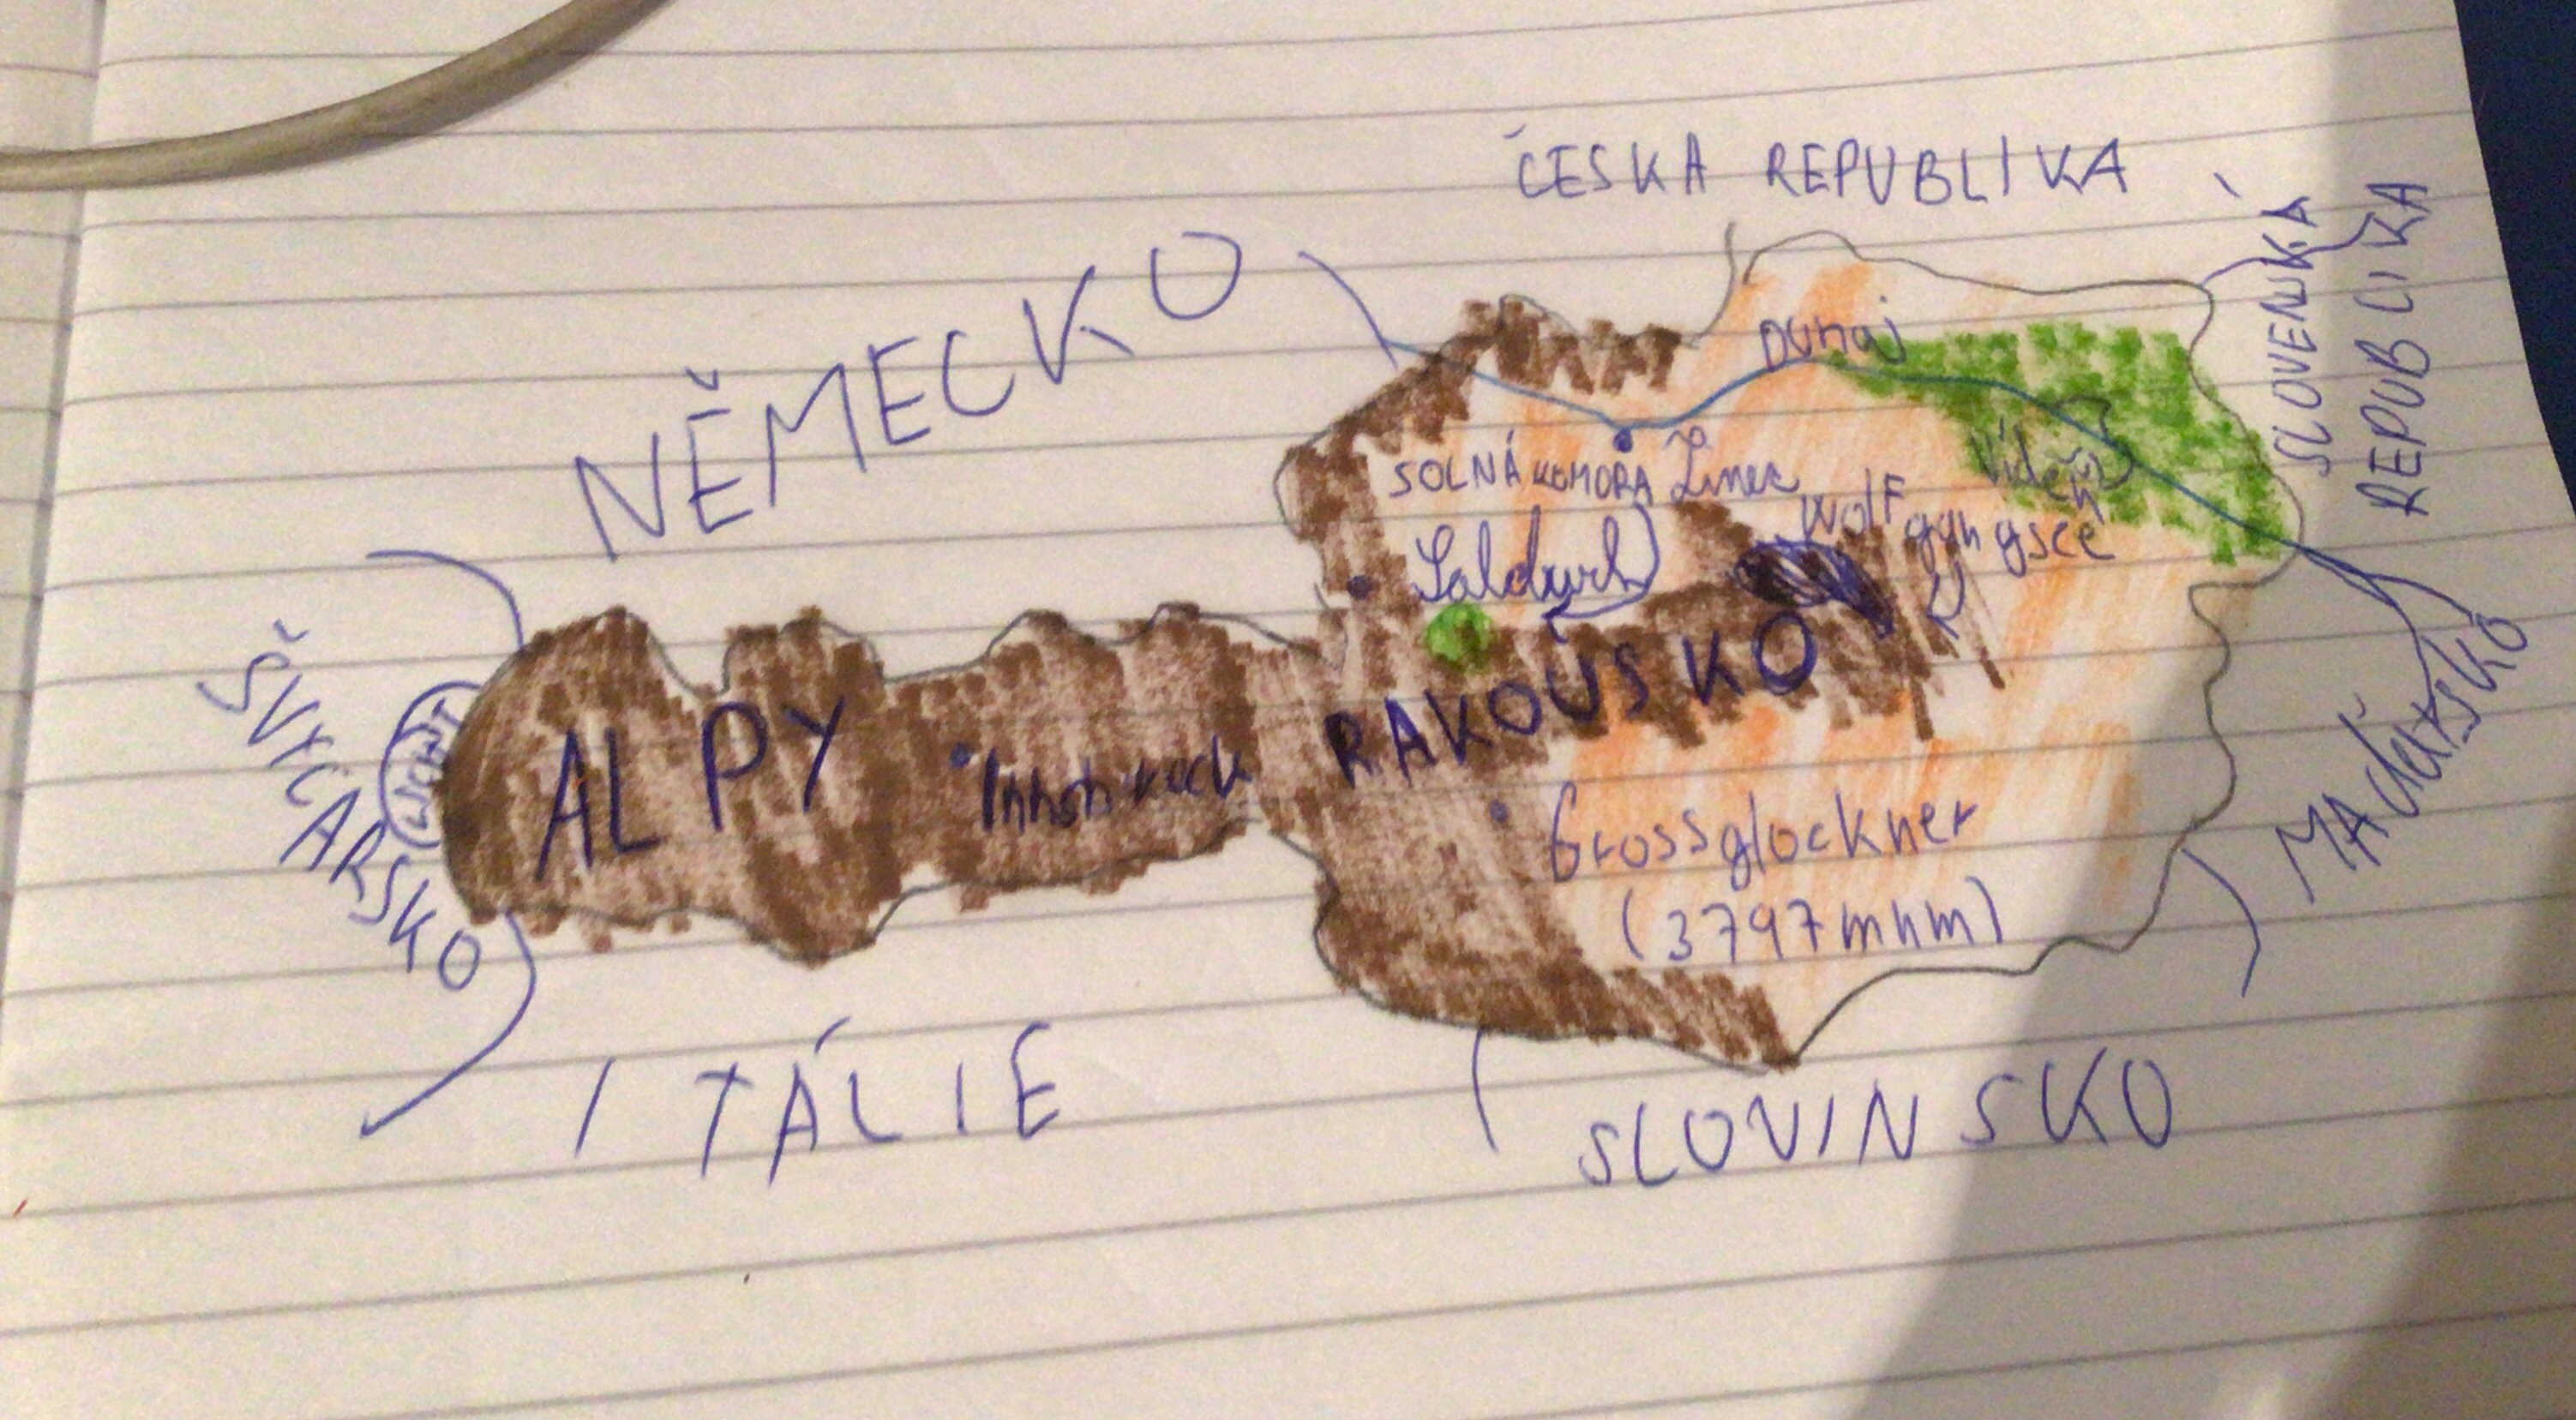 ČESKÁ REPUBLIKA
SLOVENSKÁ
REPUBLIKA
NĚMECKO
Dunaj
SOLNÁ KOMORA
Linec
Vídeň
Wolf
gangsee
Salcburk
ŠVÝCARSKO
LICHT
ALPY
Innsbruck
RAKOUSKO
Grossglockner
(3797 mnm)
MAďARSKO
ITÁLIE
SLOVINSKO